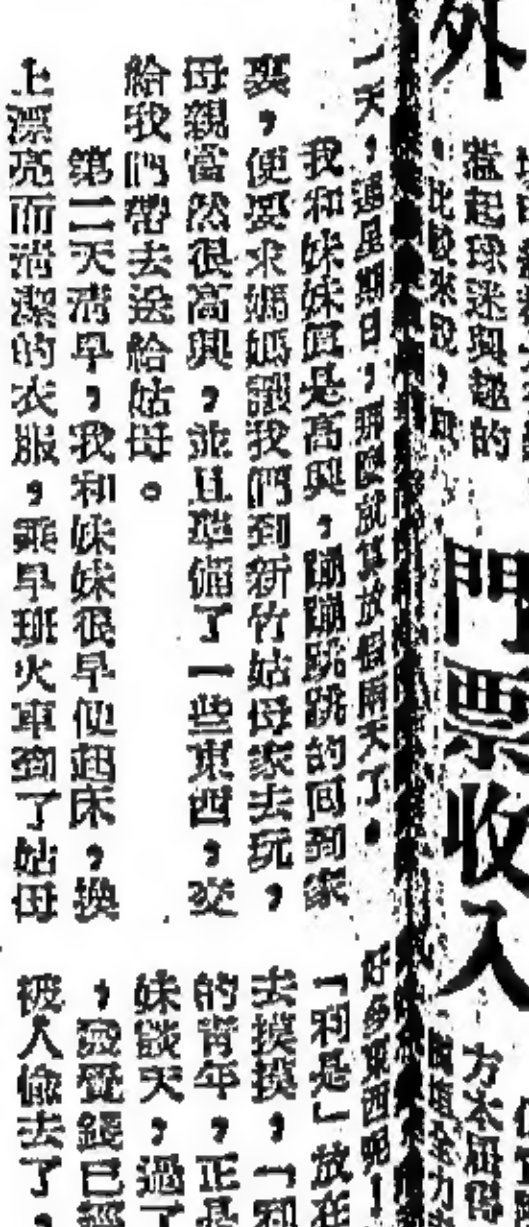 外
蓋起球迷興趣的
比較來說，
門票收入
方本屆得
一天，適星期日，那麼就算放假兩天了。
我和妹妹眞是高興，蹦蹦跳跳的回到家
裏，便要求媽媽讓我們到新竹姑母家去玩，
母親當然很高興，並且準備了一些東西，交
給我們帶去送給姑母。
第二天清早，我和妹妹很早便起床，換
上漂亮而清潔的衣服，乘早班火車到了姑母
好多東西呢！
「利是」放在
去摸摸，「利
的青年，正是
妹談天，過了
，發覺錢已經
被人偷去了，